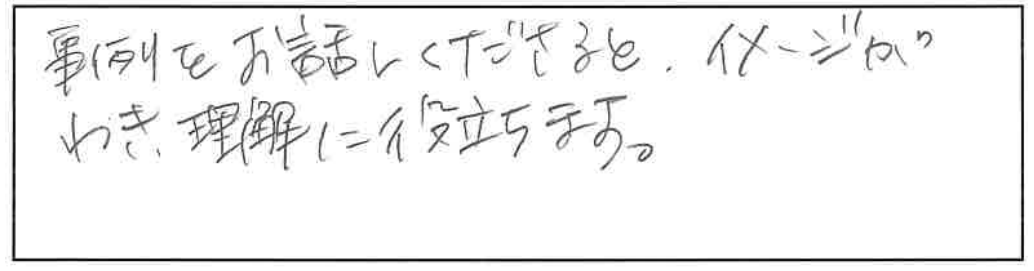 事例をお話しくださると、イメージが
わき、理解に役立ちます。